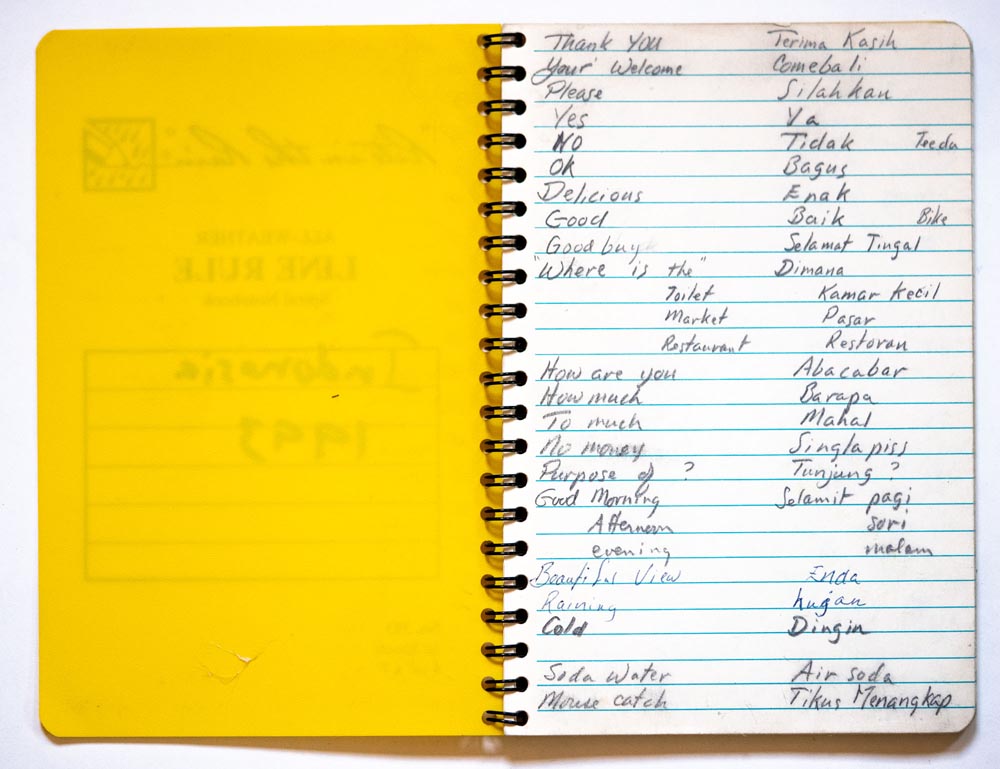 "Rite in the Rain"
ALL-WEATHER
LINE RULE
Spiral Notebook
Indonesia
1993
Thank You Terima Kasih
Your' Welcome Comebali
Please Silahkan
Yes Ya
No Tidak Teeda
OK Bagus
Delicious Enak
Good Baik Bike
Good buy Selamat Tingal
"Where is the" Dimana
Toilet Kamar Kecil
Market Pasar
Restaurant Restoran
How are you Abacabar
How much Barapa
To much Mahal
No money Singlapiss
Purpose of ? Tunjung ?
Good Morning Selamit pagi
Afternoon sori
evening malam
Beautiful View Enda
Raining hujan
Cold Dingin
Soda Water Air soda
Mouse catch Tikus Menangkap